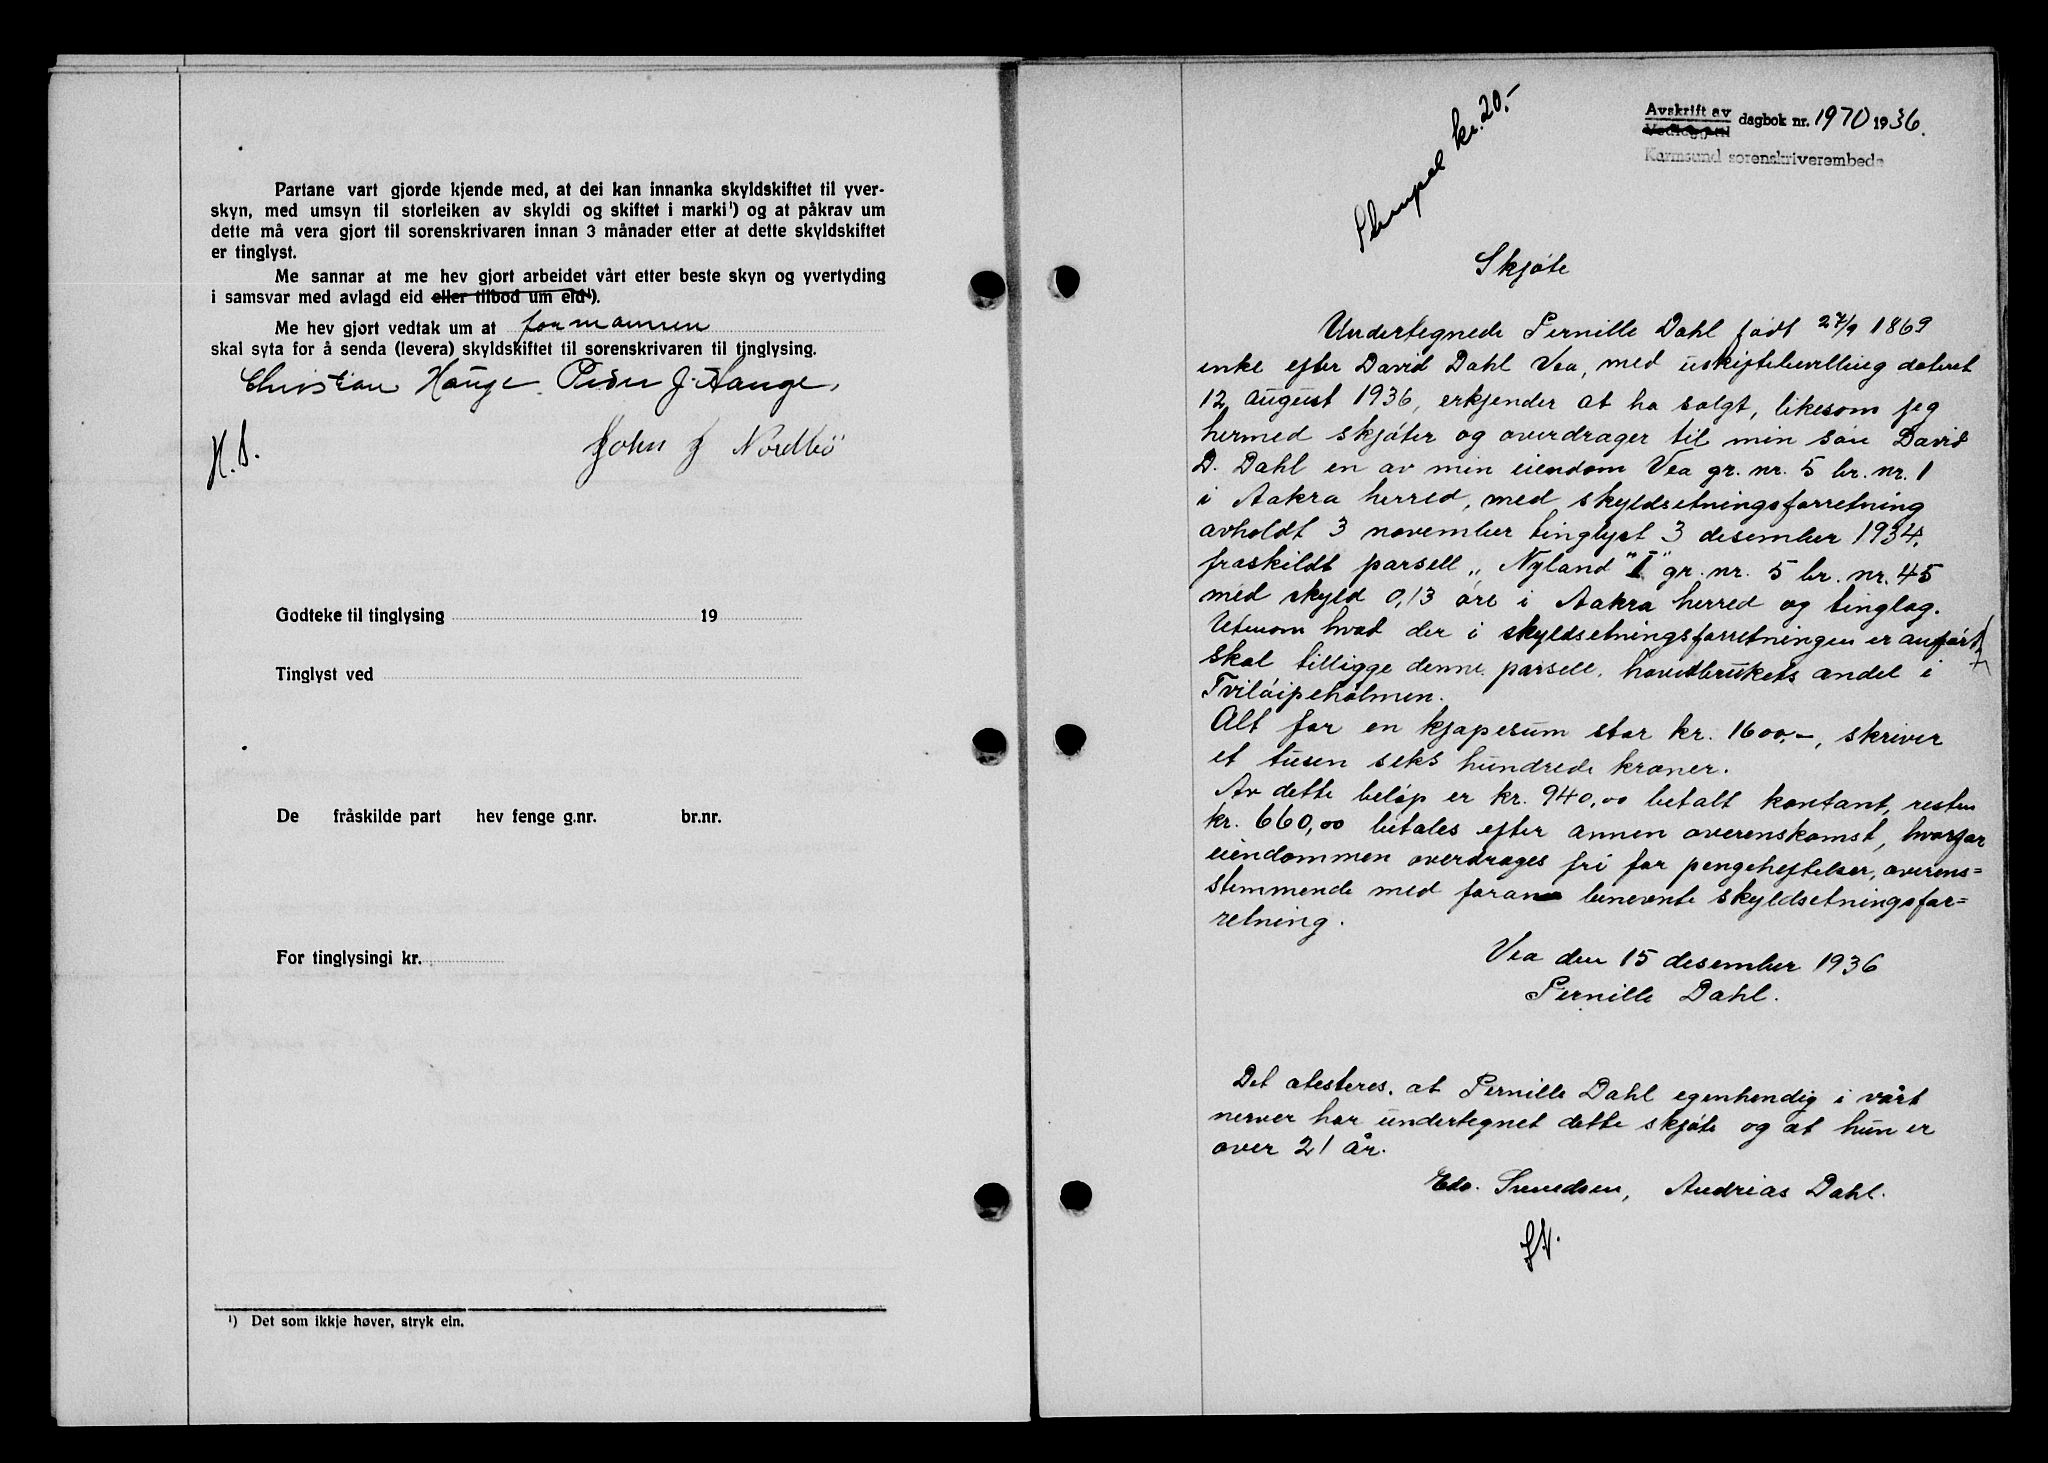 Partane vart gjorde kjende med, at dei kan innanka skyldskiftet til yver-
skyn, med umsyn til storleiken av skyldi og skiftet i marki¹) og at påkrav um
dette må vera gjort til sorenskrivaren innan 3 månader etter at dette skyldskiftet
er tinglyst.
Me sannar at me hev gjort arbeidet vårt etter beste skyn og yvertyding
i samsvar med avlagd eid eller tilbod um eid¹).
Me hev gjort vedtak um at formannen
skal syta for å senda (levera) skyldskiftet til sorenskrivaren til tinglysing.
Christian Hauge. Peder J. Hauge,
H. S.
John J Nordbö
Godteke til tinglysing 19
Tinglyst ved
De fråskilde part hev fenge g.nr. br.nr.
For tinglysingi kr.
¹) Det som ikkje høver, stryk ein.
Stempel kr. 20.-
Avskrift av
Vedlegg til
dagbok nr. 1970 1936.
Karmsund sorenskriverembede
Skjøte
Undertegnede Pernille Dahl født 27/9 1869
enke efter David Dahl Vea, med uskiftebevilling dateret
12 august 1936, erkjender at ha solgt, likesom jeg
hermed skjøter og overdrager til min søn David
D. Dahl en av min eiendom Vea gr. nr. 5 br. nr. 1
i Aakra herred, med skyldsetningsforretning
avholdt 3 november tinglyst 3 desember 1934,
fraskildt parsell „Nyland "I" gr. nr. 5 br. nr. 45
med skyld 0,13 øre i Aakra herred og tinglag.
Utenom hvat der i skyldsetningsforretningen er anført
skal tilligge denne parsell, hovedbrukets andel i
Tviløipeholmen.
Alt for en kjøpesum stor kr. 1600,-, skriver
et tusen seks hundrede kroner.
Av dette beløp er kr. 940,00 betalt kontant, resten
kr. 660,00 betales efter annen overenskomst, hvorfor
eiendommen overdrages fri for pengeheftelser, overens=
stemmende med foran benevnte skyldsetningsfor=
retning.
Vea den 15 desember 1936
Pernille Dahl.
Det atesteres, at Pernille Dahl egenhendig i vårt
nerver har undertegnet dette skjøte og at hun er
over 21 år.
Edv. Svendsen, Andreas Dahl.